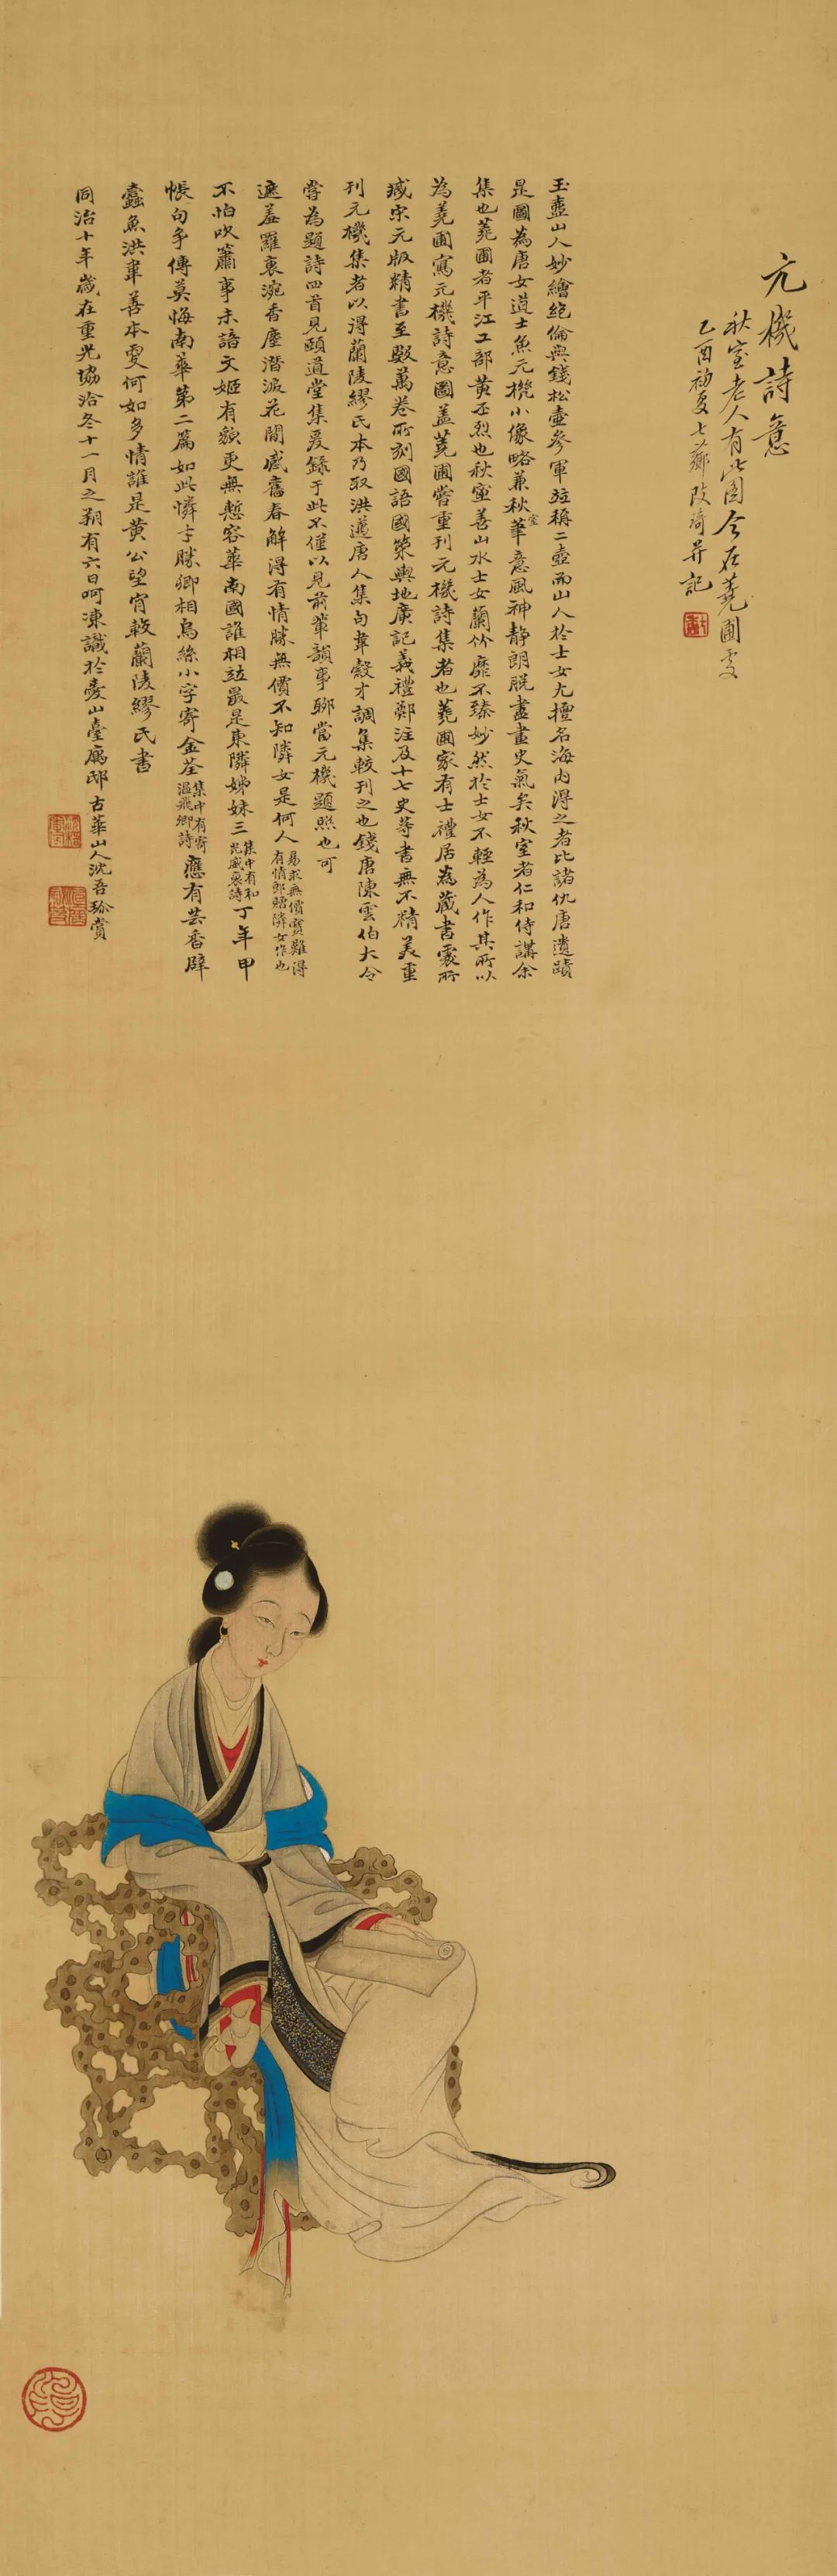 元機詩意
秋室老人有此圖今在蕘圃處
乙酉初夏七薌改琦并記
玉壺山人妙繪絕倫與錢松壺參軍竝稱二壺而山人於士女尤擅名海內得之者比諸仇唐遺蹟
是圖為唐女道士魚元機小像略兼秋室筆意風神靜朗脫盡畫史氣矣秋室者仁和侍講余
集也蕘圃者平江工部黃丕烈也秋室善山水士女蘭竹靡不臻妙然於士女不輕為人作其所以
為蕘圃寫元機詩意圖蓋蕘圃嘗重刊元機詩集者也蕘圃家有士禮居為藏書處所
臧宋元版精書至數萬卷所刻國語國策輿地廣記義禮鄭注及十七史等書無不精美重
刊元機集者以得蘭陵繆氏本乃取洪邁唐人集句韋縠才調集較刊之也錢唐陳雲伯大令
嘗為題詩四首見頤道堂集爰錄于此不僅以見前輩韻事聊當元機題照也可
遮羞羅裏涴香塵潛淚花間感舊春解得有情勝無價不知隣女是何人易求無價寶難得有情郎贈隣女作也
不怕吹簫事未諳文姬有貌更無慙容華南國誰相竝最是東隣姊妹三集中有和光威裒詩丁年甲
帳句爭傳莫悔南華第二篇如此憐才勝卿相烏絲小字寄金荃集中有寄溫飛卿詩應有芸香辟
蠹魚洪韋善本更何如多情誰是黃公望宵較蘭陵繆氏書
同治十年歲在重光協洽冬十一月之朔有六日呵凍識於臺山臺廨邸古華山人沈吾珍賞